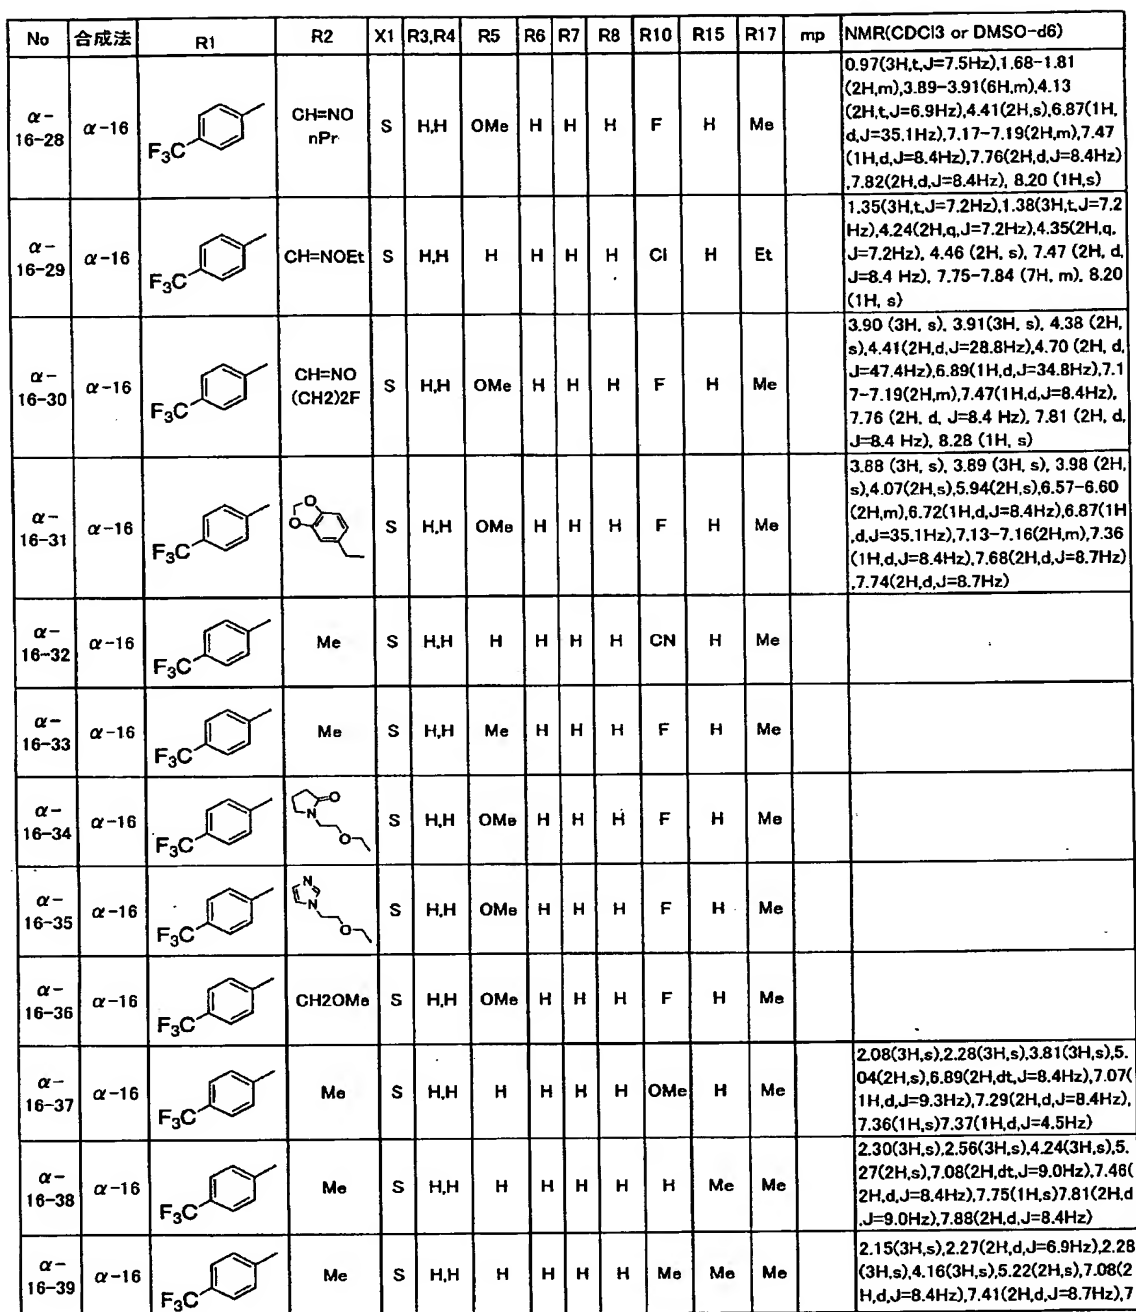 No 合成法 R1 R2 X1 R3,R4 R5 R6 R7 R8 R10 R15 R17 mp NMR(CDCl3 or DMSO-d6)
α-
16-28
α-16
F₃C
CH=NO
nPr
S H,H OMe H H H F H Me
0.97(3H,t,J=7.5Hz),1.68-1.81
(2H,m),3.89-3.91(6H,m),4.13
(2H,t,J=6.9Hz),4.41(2H,s),6.87(1H,
d,J=35.1Hz),7.17-7.19(2H,m),7.47
(1H,d,J=8.4Hz),7.76(2H,d,J=8.4Hz)
,7.82(2H,d,J=8.4Hz), 8.20 (1H,s)
α-
16-29
α-16
F₃C
CH=NOEt
S H,H H H H H Cl H Et
1.35(3H,t,J=7.2Hz),1.38(3H,t,J=7.2
Hz),4.24(2H,q,J=7.2Hz),4.35(2H,q,
J=7.2Hz), 4.46 (2H, s), 7.47 (2H, d,
J=8.4 Hz), 7.75-7.84 (7H, m), 8.20
(1H, s)
α-
16-30
α-16
F₃C
CH=NO
(CH2)2F
S H,H OMe H H H F H Me
3.90 (3H, s), 3.91(3H, s), 4.38 (2H,
s),4.41(2H,d,J=28.8Hz),4.70 (2H, d,
J=47.4Hz),6.89(1H,d,J=34.8Hz),7.1
7-7.19(2H,m),7.47(1H,d,J=8.4Hz),
7.76 (2H, d, J=8.4 Hz), 7.81 (2H, d,
J=8.4 Hz), 8.28 (1H, s)
α-
16-31
α-16
F₃C
O
O
S H,H OMe H H H F H Me
3.88 (3H, s), 3.89 (3H, s), 3.98 (2H,
s),4.07(2H,s),5.94(2H,s),6.57-6.60
(2H,m),6.72(1H,d,J=8.4Hz),6.87(1H
,d,J=35.1Hz),7.13-7.16(2H,m),7.36
(1H,d,J=8.4Hz),7.68(2H,d,J=8.7Hz)
,7.74(2H,d,J=8.7Hz)
α-
16-32
α-16
F₃C
Me S H,H H H H H CN H Me
α-
16-33
α-16
F₃C
Me S H,H Me H H H F H Me
α-
16-34
α-16
F₃C
O
N
O
S H,H OMe H H H F H Me
α-
16-35
α-16
F₃C
N
N
O
S H,H OMe H H H F H Me
α-
16-36
α-16
F₃C
CH2OMe S H,H OMe H H H F H Me
α-
16-37
α-16
F₃C
Me S H,H H H H H OMe H Me
2.08(3H,s),2.28(3H,s),3.81(3H,s),5.
04(2H,s),6.89(2H,dt,J=8.4Hz),7.07(
1H,d,J=9.3Hz),7.29(2H,d,J=8.4Hz),
7.36(1H,s)7.37(1H,d,J=4.5Hz)
α-
16-38
α-16
F₃C
Me S H,H H H H H H Me Me
2.30(3H,s),2.56(3H,s),4.24(3H,s),5.
27(2H,s),7.08(2H,dt,J=9.0Hz),7.46(
2H,d,J=8.4Hz),7.75(1H,s)7.81(2H,d
,J=9.0Hz),7.88(2H,d,J=8.4Hz)
α-
16-39
α-16
F₃C
Me S H,H H H H H Me Me Me
2.15(3H,s),2.27(2H,d,J=6.9Hz),2.28
(3H,s),4.16(3H,s),5.22(2H,s),7.08(2
H,d,J=8.4Hz),7.41(2H,d,J=8.7Hz),7